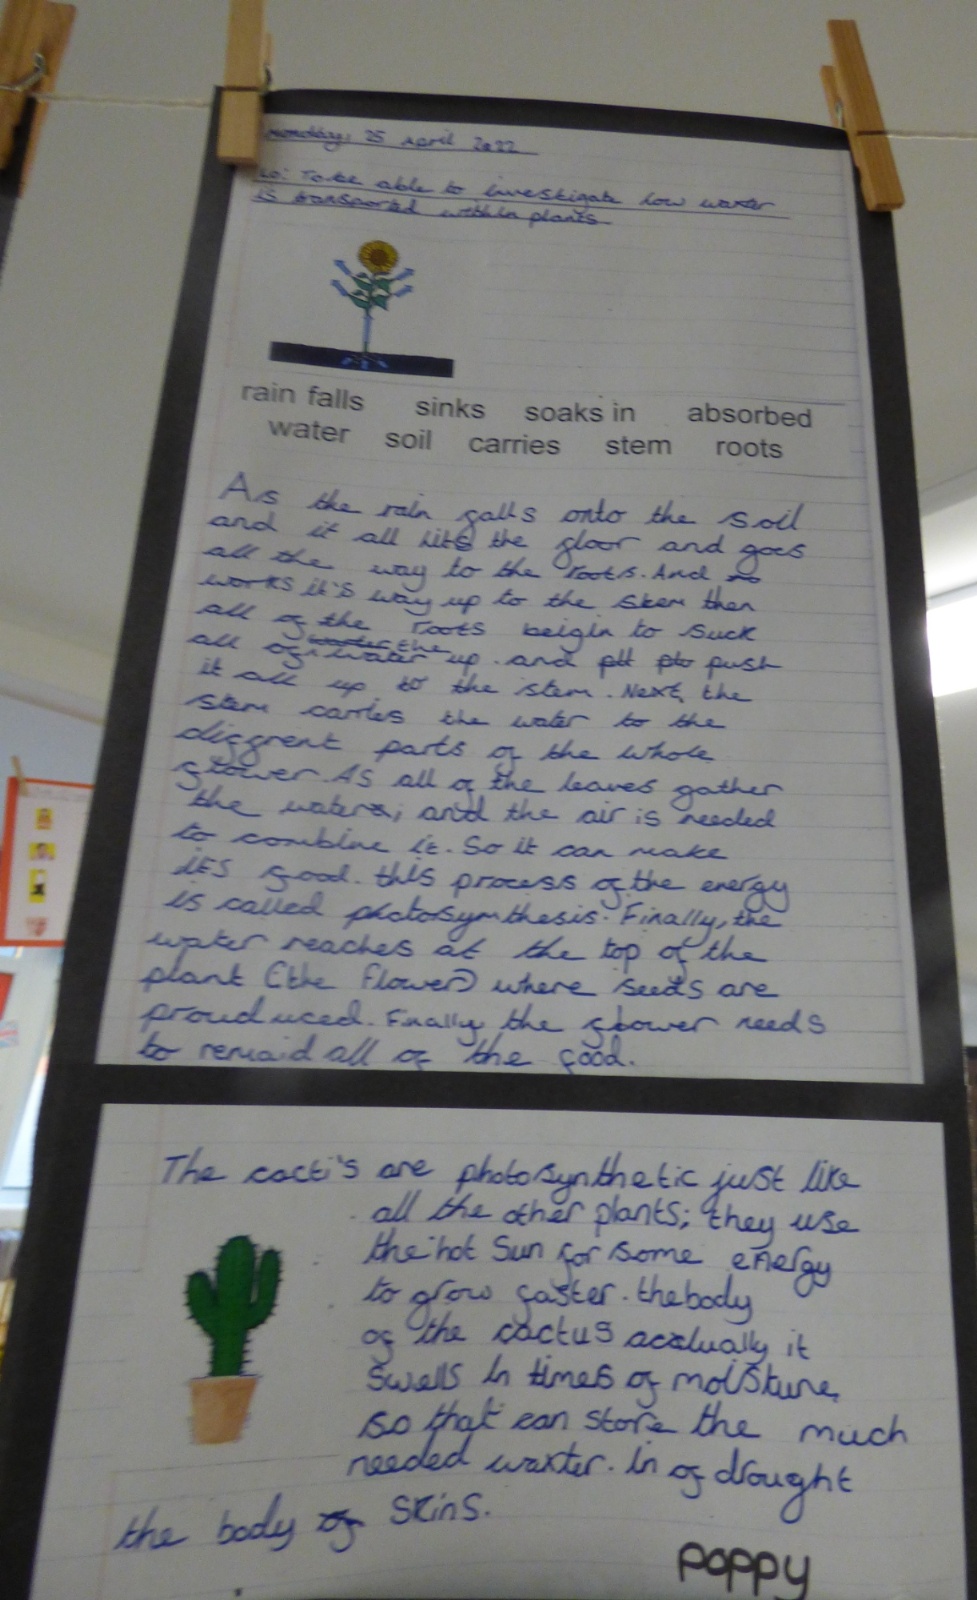 Monday, 25 April 2022
Lo: To be able to investigate how waxter
is transported within plants
rain falls sinks soaks in absorbed
water soil carries stem roots
As the rain falls onto the soil
and it all hits the floor and goes
all the way to the roots. And
works it's way up to the stem then
all of the roots beigin to suck
all of the water up. and push
it all up to the stem. Next, the
stem carries the water to the
diffrent parts of the whole
flower. As all of the leaves gather
the water, and the air is needed
to combine it. So it can make
its food. this process of the energy
is called photosymthesis. Finally, the
water reaches at the top of the
plant (the flower) where seeds are
prouduced. Finally the flower needs
to remaid all of the food.
The cacti's are photosynthetic just like
all the other plants; they use
the hot sun for some energy
to grow faster. the body
of the cactus acxlually it
swells in times of moisture,
so that can store the much
needed waxter. In of drought
the body skins.
poppy